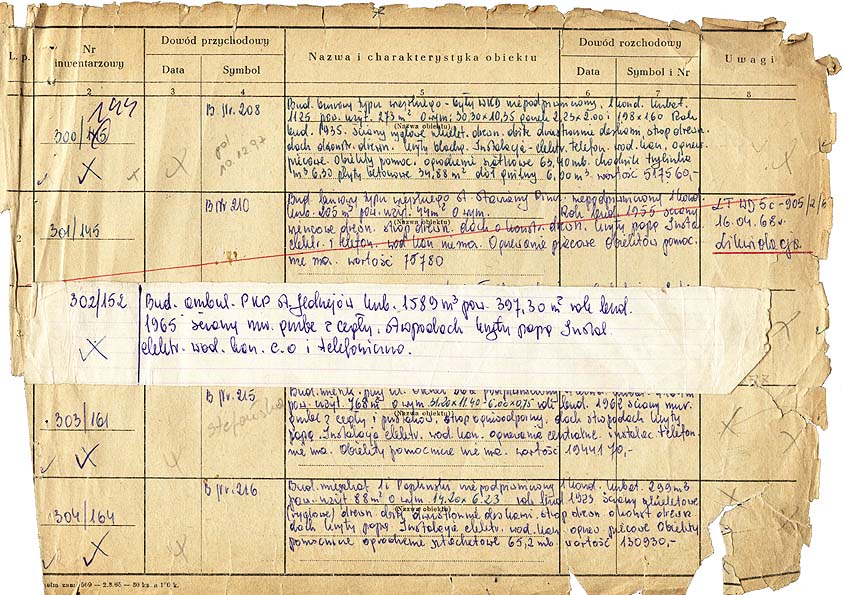 L. p.
Nr inwentarzowy
Dowód przychodowy
Data
Symbol
Nazwa i charakterystyka obiektu
Dowód rozchodowy
Data
Symbol i Nr
Uwagi
2 3 4 5 6 7 8
300/145
144
B Nr. 208
10.12.97
Bud. biurowy typu wiejskiego - były WKD niepodpiwniczony, 1 kond. kubat.
1125 pow. użyt. 273 m² o wym: 30.30 x 10,35 2,23 x 2.00 i 198 x 160 Rok
(Nazwa obiektu)
bud. 1935. ściany drewn. obite dwustronnie deskami, strop drewn.
dach drewn. kryty blachą. Instalacja - elektr. telefon. wod. kan. ogrzew.
piecowe. Obiekty pomoc. ogrodzenie siatkowe 63,90 mb. chodnik trylinka
m² 6.30 płyty betonowe 34.88 m² dół gnilny 6,00 m³. wartość 517560,-
2
301/145
B Nr 210
Bud biurowy typu wiejskiego st. niepodpiwniczony 1 kond
kub. 205 m³ pow. użyt. 44 m² o wym. Rok bud. 1955 ściany
(Nazwa obiektu)
wieńcowe drewn. strop drewn. dach o konstr. drewn. kryty papą Instal.
elektr. i telefon. wod. kan nie ma. Ogrzewanie piecowe Obiektów pomoc.
nie ma. wartość 75780
LT WD5c-905/2/6
16.04.68r.
Likwidacja
302/152
Bud. ambul. PKP st. Jędrzejów kub. 1589 m³ pow. 397,30 m² rok bud.
1965 ściany mur. grube z cegły. stropodach kryty papą Instal.
elektr. wod. kan. c.o i telefoniczna.
3
303/161
B Nr. 215
pow. użyt. 768 m² o wym 31.20 x 11.40 - 6.00 x 0,75 rok bud. 1962 ściany mur.
(Nazwa obiektu)
grube z cegły i pustaków, strop ognioodporny, dach stropodach kryty
papą. Instalacja elektr. wod. kan. ogrzewanie centralne. instalac. telefon.
nie ma. Obiekty pomocnicze nie ma. wartość 1944170,-
304/164
B Nr. 216
Bud. mieszkal. niepodpiwniczony 1 kond. kubat. 299 m³
pow. użyt 88 m² o wym 14.20 x 6.23 rok bud 1923 ściany szkieletowe
(Nazwa obiektu)
(ryglowe) drewn. obite dwustronnie deskami. strop drewn. o konstr drewn
dach kryty papą Instalacja elektr. wod. kan. ogrzew. piecowe Obiekty
pomocnicze ogrodzenie sztachetowe 65,2 mb. wartość 130930,-
zam. 569 — 2.8.65 — 50 ks. a 100 k.